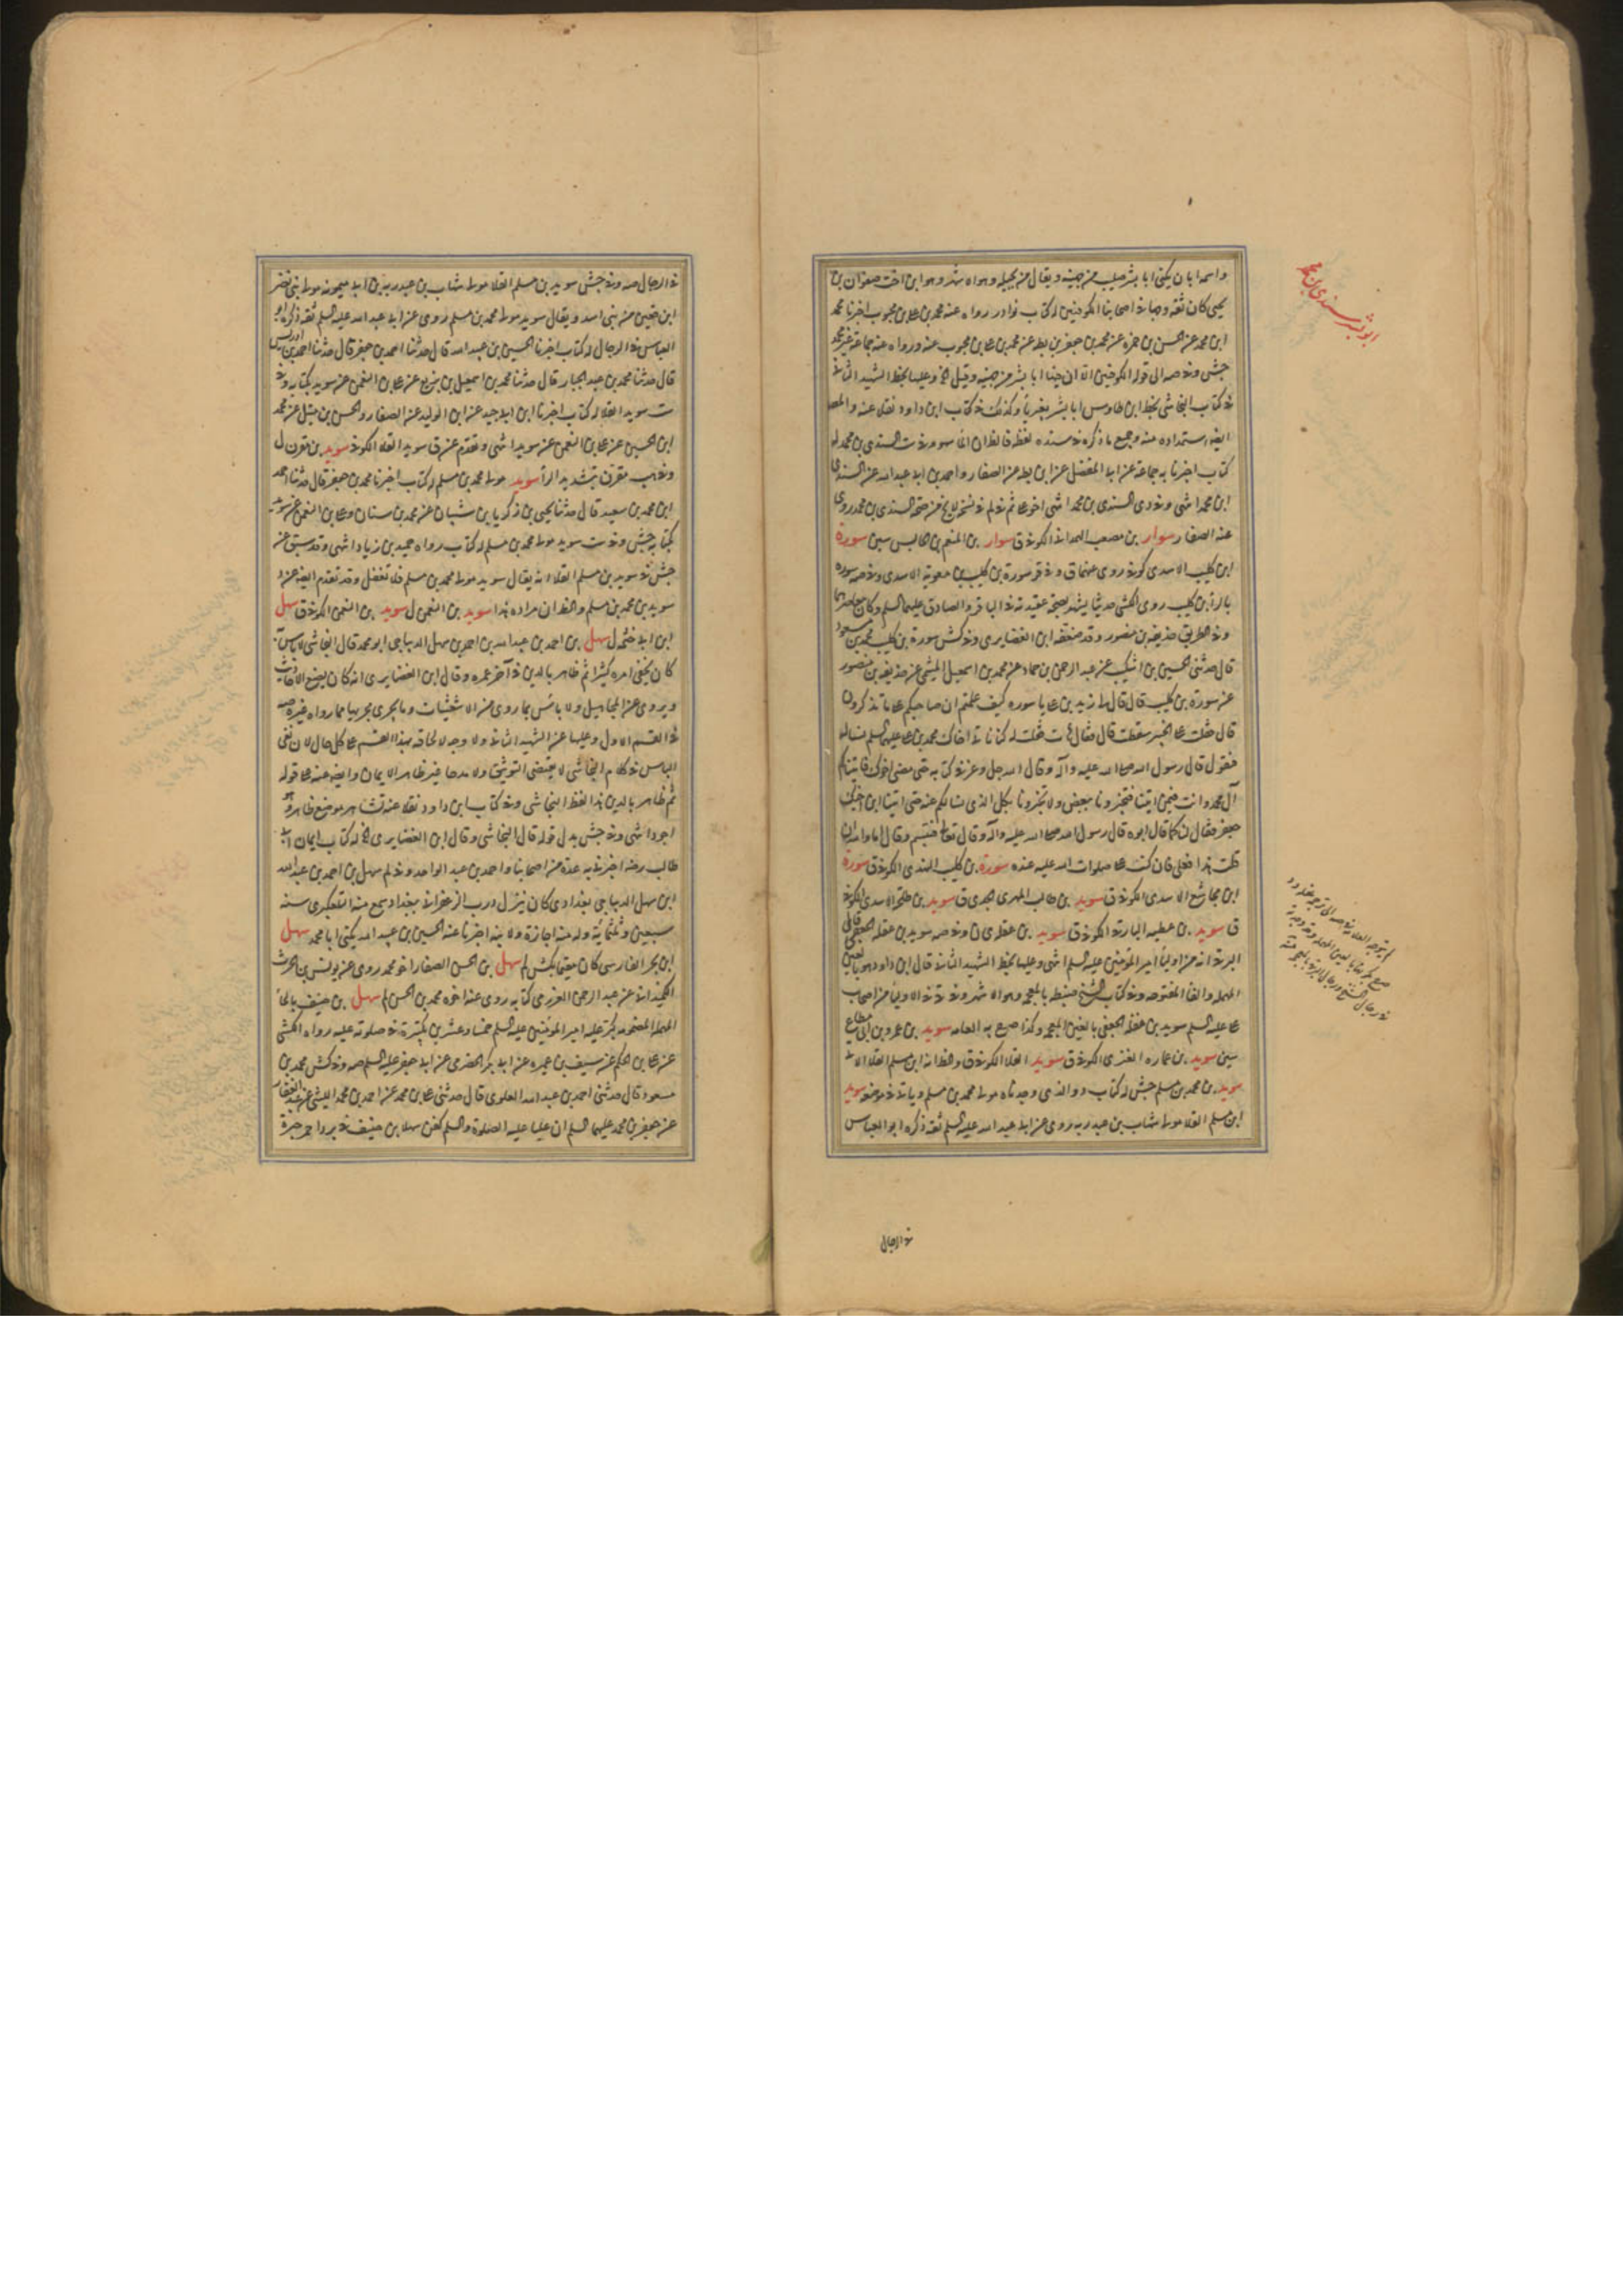 واسمه ابان يكنى ابا بشر صليب من جهينه ويقال من بجيله وهو الاشهر وهو ابن اخت صفوان بن
يحيى كان ثقه وجها في اصحابنا الكوفيين له كتاب نوادر رواه عنه محمد بن علي بن محبوب اخبرنا محمد
ابن محمد عن الحسن بن حمزه عن محمد بن جعفر بن بطه عن محمد بن علي بن محبوب عنه ورواه عنه جماعة غير محمد
جش وفي صه الى قوله الكوفيين الا ان فيها ابا بشر من جهينه وقيل الخ وعليها بخط الشهيد الثاني
في كتاب النجاشي بخط ابن طاوس ابا بشر بغير يا وكذلك في كتاب ابن داود نقلا عنه والمص
كتاب اخبرنا به جماعة عن ابي المفضل عن ابن بطه عن الصفار واحمد بن ابي عبد الله عن السندي
ابن محمد انتهى وفي دى السندي بن محمد انتهى اخو علي ثم في لم
عنه الصفار سوار بن مصعب الهمداني الكوفي ق سوار بن المنعم بن حابس سين سورة
ابن كليب الاسدي كوفي روى عنهما ق وفي قر سورة بن كليب بن معوية الاسدي وفي صه سوره
بالراء بن كليب روى الكشي حديثا يشهد بصحة عقيدته في الباقر والصادق عليهما السلم
وفي الطريق حذيفه بن منصور وقد ضعفه ابن الغضايري وفي كش سورة بن كليب محمد بن مسعود
قال حدثني الحسين بن اشكيب عن عبد الرحمن بن حماد عن محمد بن اسمعيل الميثمي عن حذيفه بن منصور
عن سورة بن كليب قال قال لي زيد بن علي يا سوره كيف علمتم ان صاحبكم على ما تذكرون
قال فقلت على الخبير سقطت قال فقال هات فقلت له كنا ناتي اخاك محمد بن علي عليهما السلم نساله
فيقول قال رسول الله صلى الله عليه وآله وقال الله جل وعز في كتابه حتى مضى اخوك فاتيناكم
آل محمد وانت فيمن اتينا فتخبرونا ببعض ولا تخبرونا بكل الذي نسالكم عنه حتى اتينا ابن اخيك
جعفر فقال لنا كما قال ابوه قال رسول الله صلى الله عليه وآله وقال تعالى فتبسم وقال اما والله ان
قلت هذا فعلي فان كتب علي صلوات الله عليه عنده سورة بن كليب النهدي الكوفي ق سورة
ابن مجاشع الاسدي الكوفي ق سويد بن طالب المهري ق سويد بن طلحة الاسدي الكوفي
ق سويد بن عطيه البارقي الكوفي ق سويد بن غفله ى ن وفي صه سويد بن غفله الجعفي قال
البرقي انه من اولياء امير المؤمنين عليه السلم انتهى وعليها بخط الشهيد الثاني قال ابن داود هو بالعين
المهمله والفا المفتوحه وفي كتاب الشيخ ضبطه بالمعجمه وهو الاشهر وفي قي في الاولياء من اصحاب
علي عليه السلم سويد بن غفله الجعفي بالغين المعجمه وكذا صرح به العامه سويد بن عمرو بن ابي مطاع
سين سويد بن عماره الغنزي الكوفي ق سويد القلا الكوفي ق والظ انه ابن مسلم القلا الاتي
سويد بن محمد بن مسلم جش له كتاب د والذي وجدناه مولى محمد بن مسلم وياتي في موضعه سويد
ابن مسلم القلا مولى شهاب بن عبد ربه روى عن ابي عبد الله عليه السلم ثقه ذكره ابو العباس
في الرجال
ابو بشر سندي بن محمد
في الرجال صه وفي جش سويد بن مسلم القلا مولى شهاب بن عبد ربه بن ابي ميمونه مولى بني نصر
ابن قعين من بني اسد ويقال سويد مولى محمد بن مسلم روى عن ابي عبد الله عليه السلم ثقه ذكره ابو
العباس في الرجال له كتاب اخبرنا الحسين بن عبيد الله قال حدثنا احمد بن جعفر قال حدثنا احمد بن ادريس
قال حدثنا محمد بن عبد الجبار قال حدثنا محمد بن اسمعيل بن بزيع عن علي بن النعمن عن سويد بكتابه وفي
ست سويد القلا له كتاب اخبرنا ابن ابي جيد عن ابن الوليد عن الصفار والحسن بن متيل عن محمد
ابن الحسين عن علي بن النعمن عن سويد انتهى وتقدم عن ق سويد القلا الكوفي سويد بن مقرن ل
وفي هب مقرن بتشديد الراء سويد مولى محمد بن مسلم له كتاب اخبرنا محمد بن جعفر قال حدثنا احمد
ابن محمد بن سعيد قال حدثنا يحيى بن زكريا بن شيبان عن محمد بن سنان وعلي بن النعمن عن سويد
بكتابه جش وفي ست سويد مولى محمد بن مسلم له كتاب رواه حميد بن زياد انتهى وقد سبق عن
جش في سويد بن مسلم القلا انه يقال سويد مولى محمد بن مسلم فلا تغفل وقد تقدم ايضا عن د
سويد بن محمد بن مسلم والظ ان مراده هذا سويد بن النعمن ل سويد بن النعمن الكوفي ق سهل
ابن ابي حثمه ل سهل بن احمد بن عبد الله بن احمد بن سهل الديباجي ابو محمد قال النجاشي لا باس به
كان يخفى امره كثيرا ثم ظاهر بالدين في آخر عمره وقال ابن الغضايري انه كان يضع الاحاديث
ويروي عن المجاهيل ولا باس بما روى من الاشعثيات وما يجري مجريها مما رواه غيره صه
في القسم الاول وعليها عن الشهيد الثاني ولا وجه لالحاقه بهذا القسم على كل حال لان نفي
الباس في كلام النجاشي لا يقتضي التوثيق ولا مدحا غير ظاهر الايمان وايضا عنه على قوله
ثم ظاهر بالدين هذا لفظ النجاشي وفي كتاب ابن داود نقلا عنه تشاهر موضع ظاهر وهو
اجود انتهى وفي جش بدل قوله قال النجاشي وقال ابن الغضايري الخ له كتاب ايمان ابي
طالب رضه اخبرنا به عدة من اصحابنا واحمد بن عبد الواحد وفي لم سهل بن احمد بن عبد الله
ابن سهل الديباجي بغدادي كان ينزل درب الزعفراني ببغداد سمع منه التلعكبري سنه
سبعين وثلثمائه وله منه اجازة ولابنه اخبرنا عنه الحسين بن عبيد الله يكنى ابا محمد سهل
ابن بحر الفارسي كان مقيما بكش لم سهل بن الحسن الصفار اخو محمد روى عن يوسف بن الحرث
الكميداني عن عبد الرحمن العزرمي كتابه روى عنه اخوه محمد بن الحسن لم سهل بن حنيف بالحاء
المهمله المضمومه كبر عليه امير المؤمنين عليه السلم خمسا وعشرين تكبيرة في صلوته عليه رواه الكشي
عن علي بن الحكم عن سيف بن عميره عن ابي بكر الحضرمي عن ابي جعفر عليه السلم صه وفي كش محمد بن
مسعود قال حدثني احمد بن عبد الله العلوي قال حدثني علي بن محمد عن احمد بن محمد الليثي عن عبد الغفار
عن جعفر بن محمد عليهما السلم ان عليا عليه الصلوة والسلم كفن سهل بن حنيف في برد احمر حبرة